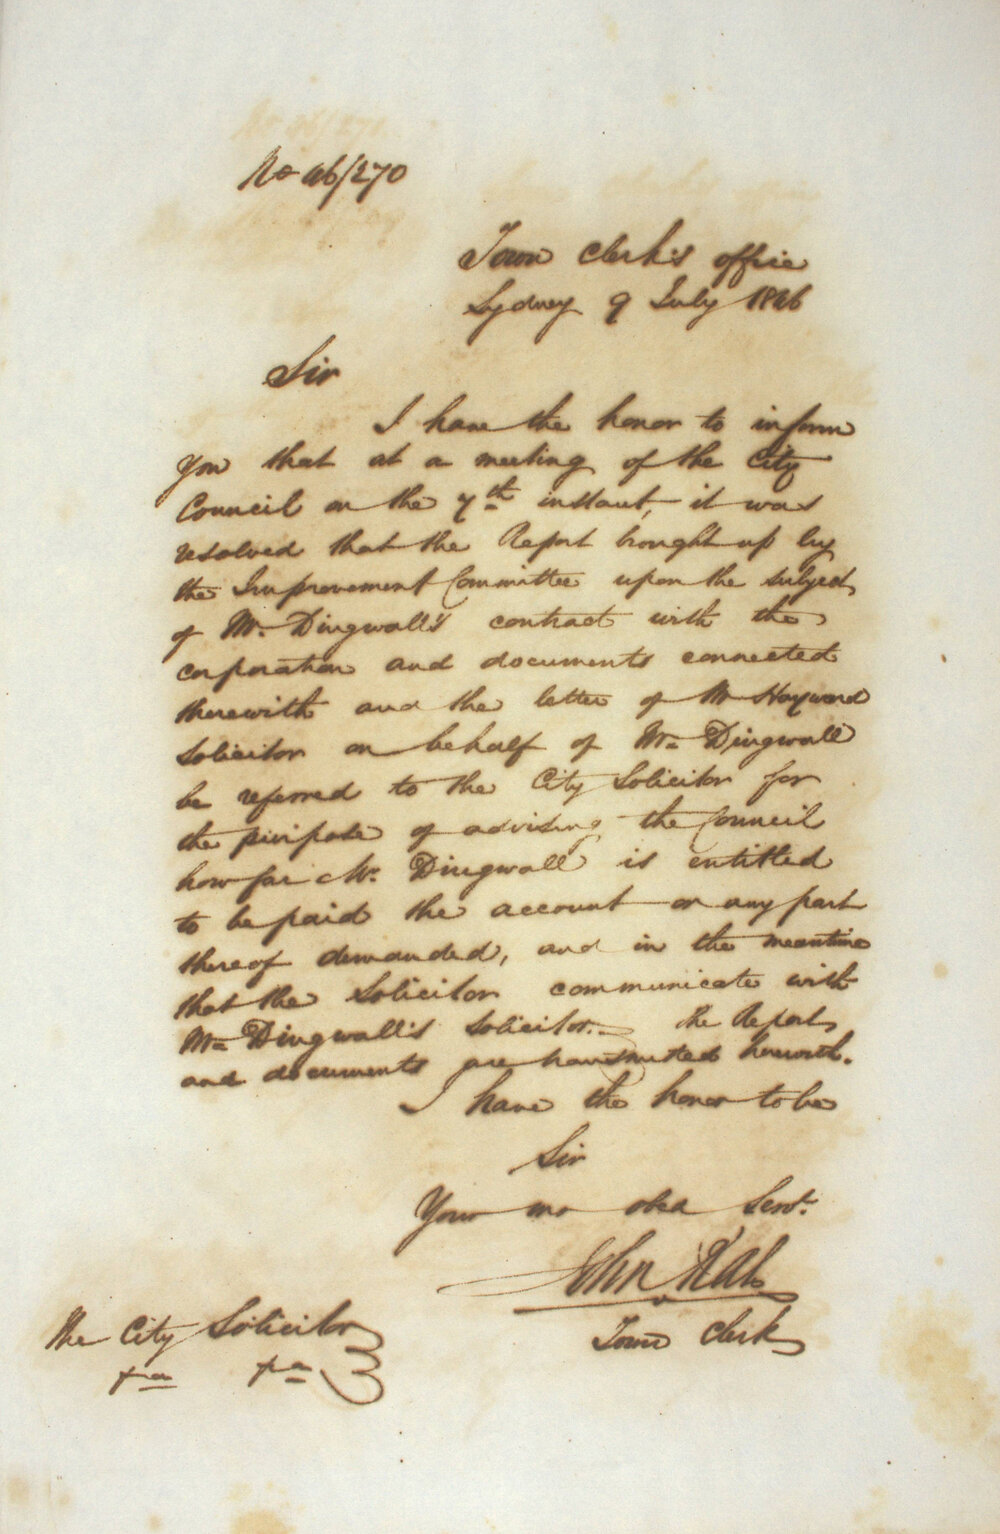 No 46/270
Town Clerk's office
Sydney 9 July 1846
Sir
I have the honor to inform
you that at a meeting of the City
Council on the 7th instant, it was
resolved that the Report brought up by
the Improvement Committee upon the subject
of Mr. Dingwall's contract with the
corporation and documents connected
therewith and the letter of Mr Hayward
Solicitor on behalf of Mr. Dingwall
be referred to the City Solicitor for
the purpose of advising the Council
how far Mr. Dingwall is entitled
to be paid the account or any part
thereof demanded, and in the meantime
that the Solicitor communicate with
Mr. Dingwall's solicitor. The Report
and documents are transmitted herewith.
I have the honor to be
Sir
Your mo obd Servt.
John Rae
Town Clerk
The City Solicitor